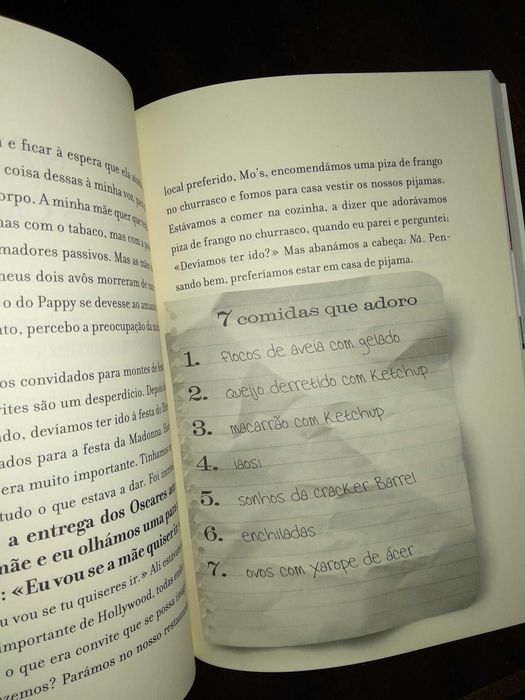 e ficar à espera que ela
coisa dessas à minha voz,
orpo. A minha mãe quer que
mas com o tabaco, mas com
madores passivos. Mas as mães
neus dois avôs morreram de
o do Pappy se devesse ao
nto, percebo a preocupação da
os convidados para montes de
rites são um desperdício. Depois
ndo, devíamos ter ido à festa do
ados para a festa da Madonna.
era muito importante. Tínhamos
tudo o que estava a dar. Foi
a entrega dos Oscares
mãe e eu olhámos uma para
: «Eu vou se a mãe quiser!
u vou se tu quiseres ir.» Ali
importante de Hollywood, todas
o que era convite que se possa
zemos? Parámos no nosso
local preferido, Mo's, encomendámos uma piza de frango
no churrasco e fomos para casa vestir os nossos pijamas.
Estávamos a comer na cozinha, a dizer que adorávamos
piza de frango no churrasco, quando eu parei e perguntei:
«Devíamos ter ido?» Mas abanámos a cabeça: Ná. Pen-
sando bem, preferíamos estar em casa de pijama.
7 comidas que adoro
1. flocos de aveia com gelado
2. queijo derretido com Ketchup
3. macarrão com Ketchup
4. iaosi
5. sonhos da cracker Barrel
6. enchiladas
7. ovos com xarope de ácer